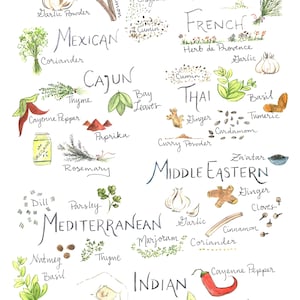 Garlic Powder
Cumin
FRENCH
Herb de Provence
MEXICAN
Coriander
Garlic
CAJUN
Cumin
THAI
Thyme
Bay Leaves
Basil
Cayenne Pepper
Ginger
Turmeric
Paprika
Cardamom
Curry Powder
Rosemary
Za'atar
MIDDLE EASTERN
Dill
Parsley
Ginger
Cloves
Garlic
MEDITERRANEAN
Cinnamon
Marjoram
Coriander
Nutmeg
Thyme
Basil
INDIAN
Cayenne Pepper